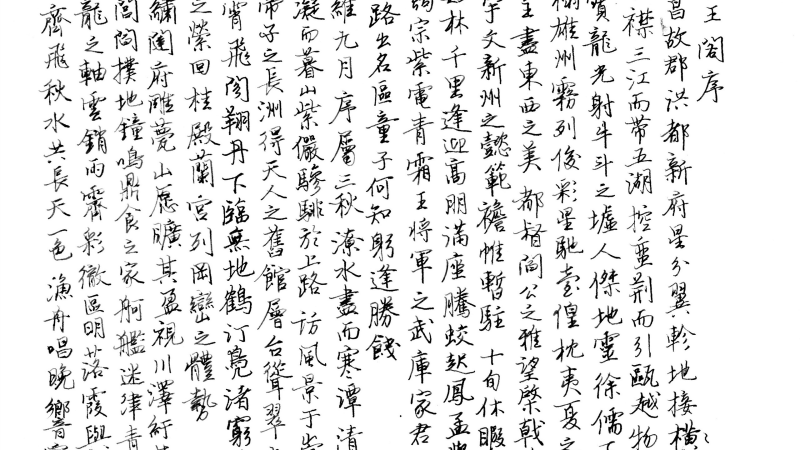 王閣序
昌故郡洪都新府星分翼軫地接橫
襟三江而帶五湖控蠻荊而引甌越物
寶龍光射牛斗之墟人傑地靈徐儒
榻雄州霧列俊彩星馳臺隍枕夷夏之
主盡東西之美都督閻公之雅望棨戟
宇文新州之懿範襜帷暫駐十旬休暇
如林千里逢迎高朋滿座騰蛟起鳳孟
詞宗紫電青霜王將軍之武庫家君
路出名區童子何知躬逢勝餞
維九月序屬三秋潦水盡而寒潭清
凝而暮山紫儼驂騑於上路訪風景于崇
帝子之長洲得天人之舊館層台聳翠
霄飛閣翔丹下臨無地鶴汀鳧渚窮
之榮回桂殿蘭宮列岡巒之體勢
繡闥府雕甍山原曠其盈視川澤紆
閭閻撲地鐘鳴鼎食之家舸艦迷津青
龍之軸雲銷雨霽彩徹區明落霞與
齊飛秋水共長天一色漁舟唱晚響